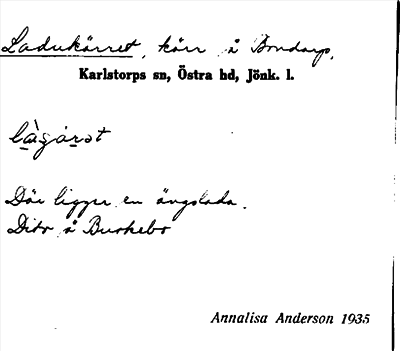 Ladukärret, kärr å Bondarp,
Karlstorps sn, Östra hd, Jönk. l.
Där ligger en ängslada.
Dito å Buskebo
Annalisa Anderson 1935